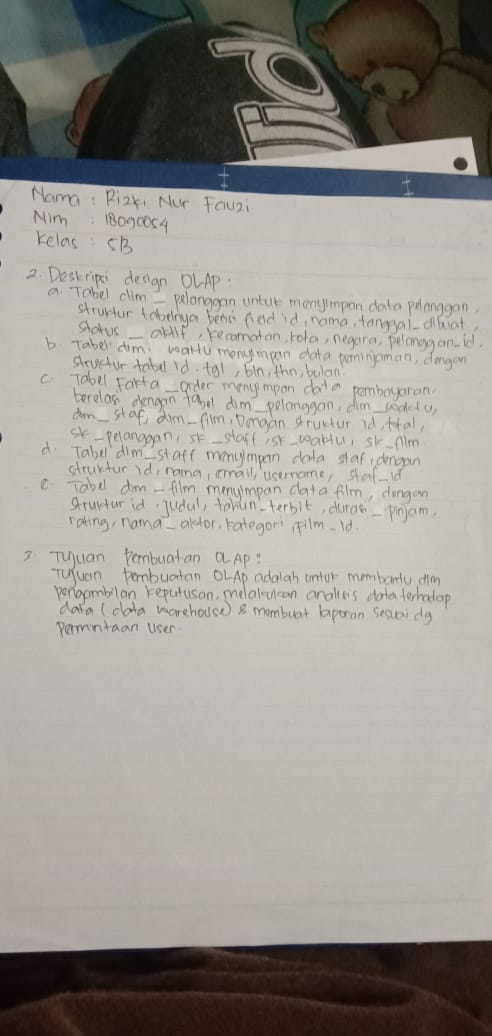 Nama : Rizki Nur Fauzi
Nim : 18090054
Kelas : 5B
2. Deskripsi design OLAP :
a. Tabel dim _ pelanggan untuk menyimpan data pelanggan,
struktur tabelnya berisi field id, nama, tanggal_dibuat,
status _ aktif, kecamatan, kota, negara, pelanggan_id.
b. Tabel dim. waktu menyimpan data peminjaman, dengan
struktur tabel id. tgl, bln, thn, bulan.
c. Tabel Fakta _ order menyimpan data pembayaran.
berelasi dengan tabel dim_pelanggan, dim_waktu,
dim_staf, dim_film, Dengan struktur id, total,
sk_pelanggan, sk_staff, sk_waktu, sk_film.
d. Tabel dim_staff menyimpan data staf, dengan
struktur id, nama, email, username, staf_id
e. Tabel dim _ film menyimpan data film, dengan
struktur id, judul, tahun_terbit, durasi _ pinjam,
rating, nama _ aktor, kategori, film_id.
3. Tujuan Pembuatan OLAP :
Tujuan Pembuatan OLAP adalah untuk membantu dlm
pengambilan keputusan, melakukan analisis data terhadap
data (data warehouse) & membuat laporan sesuai dg
Permintaan User.